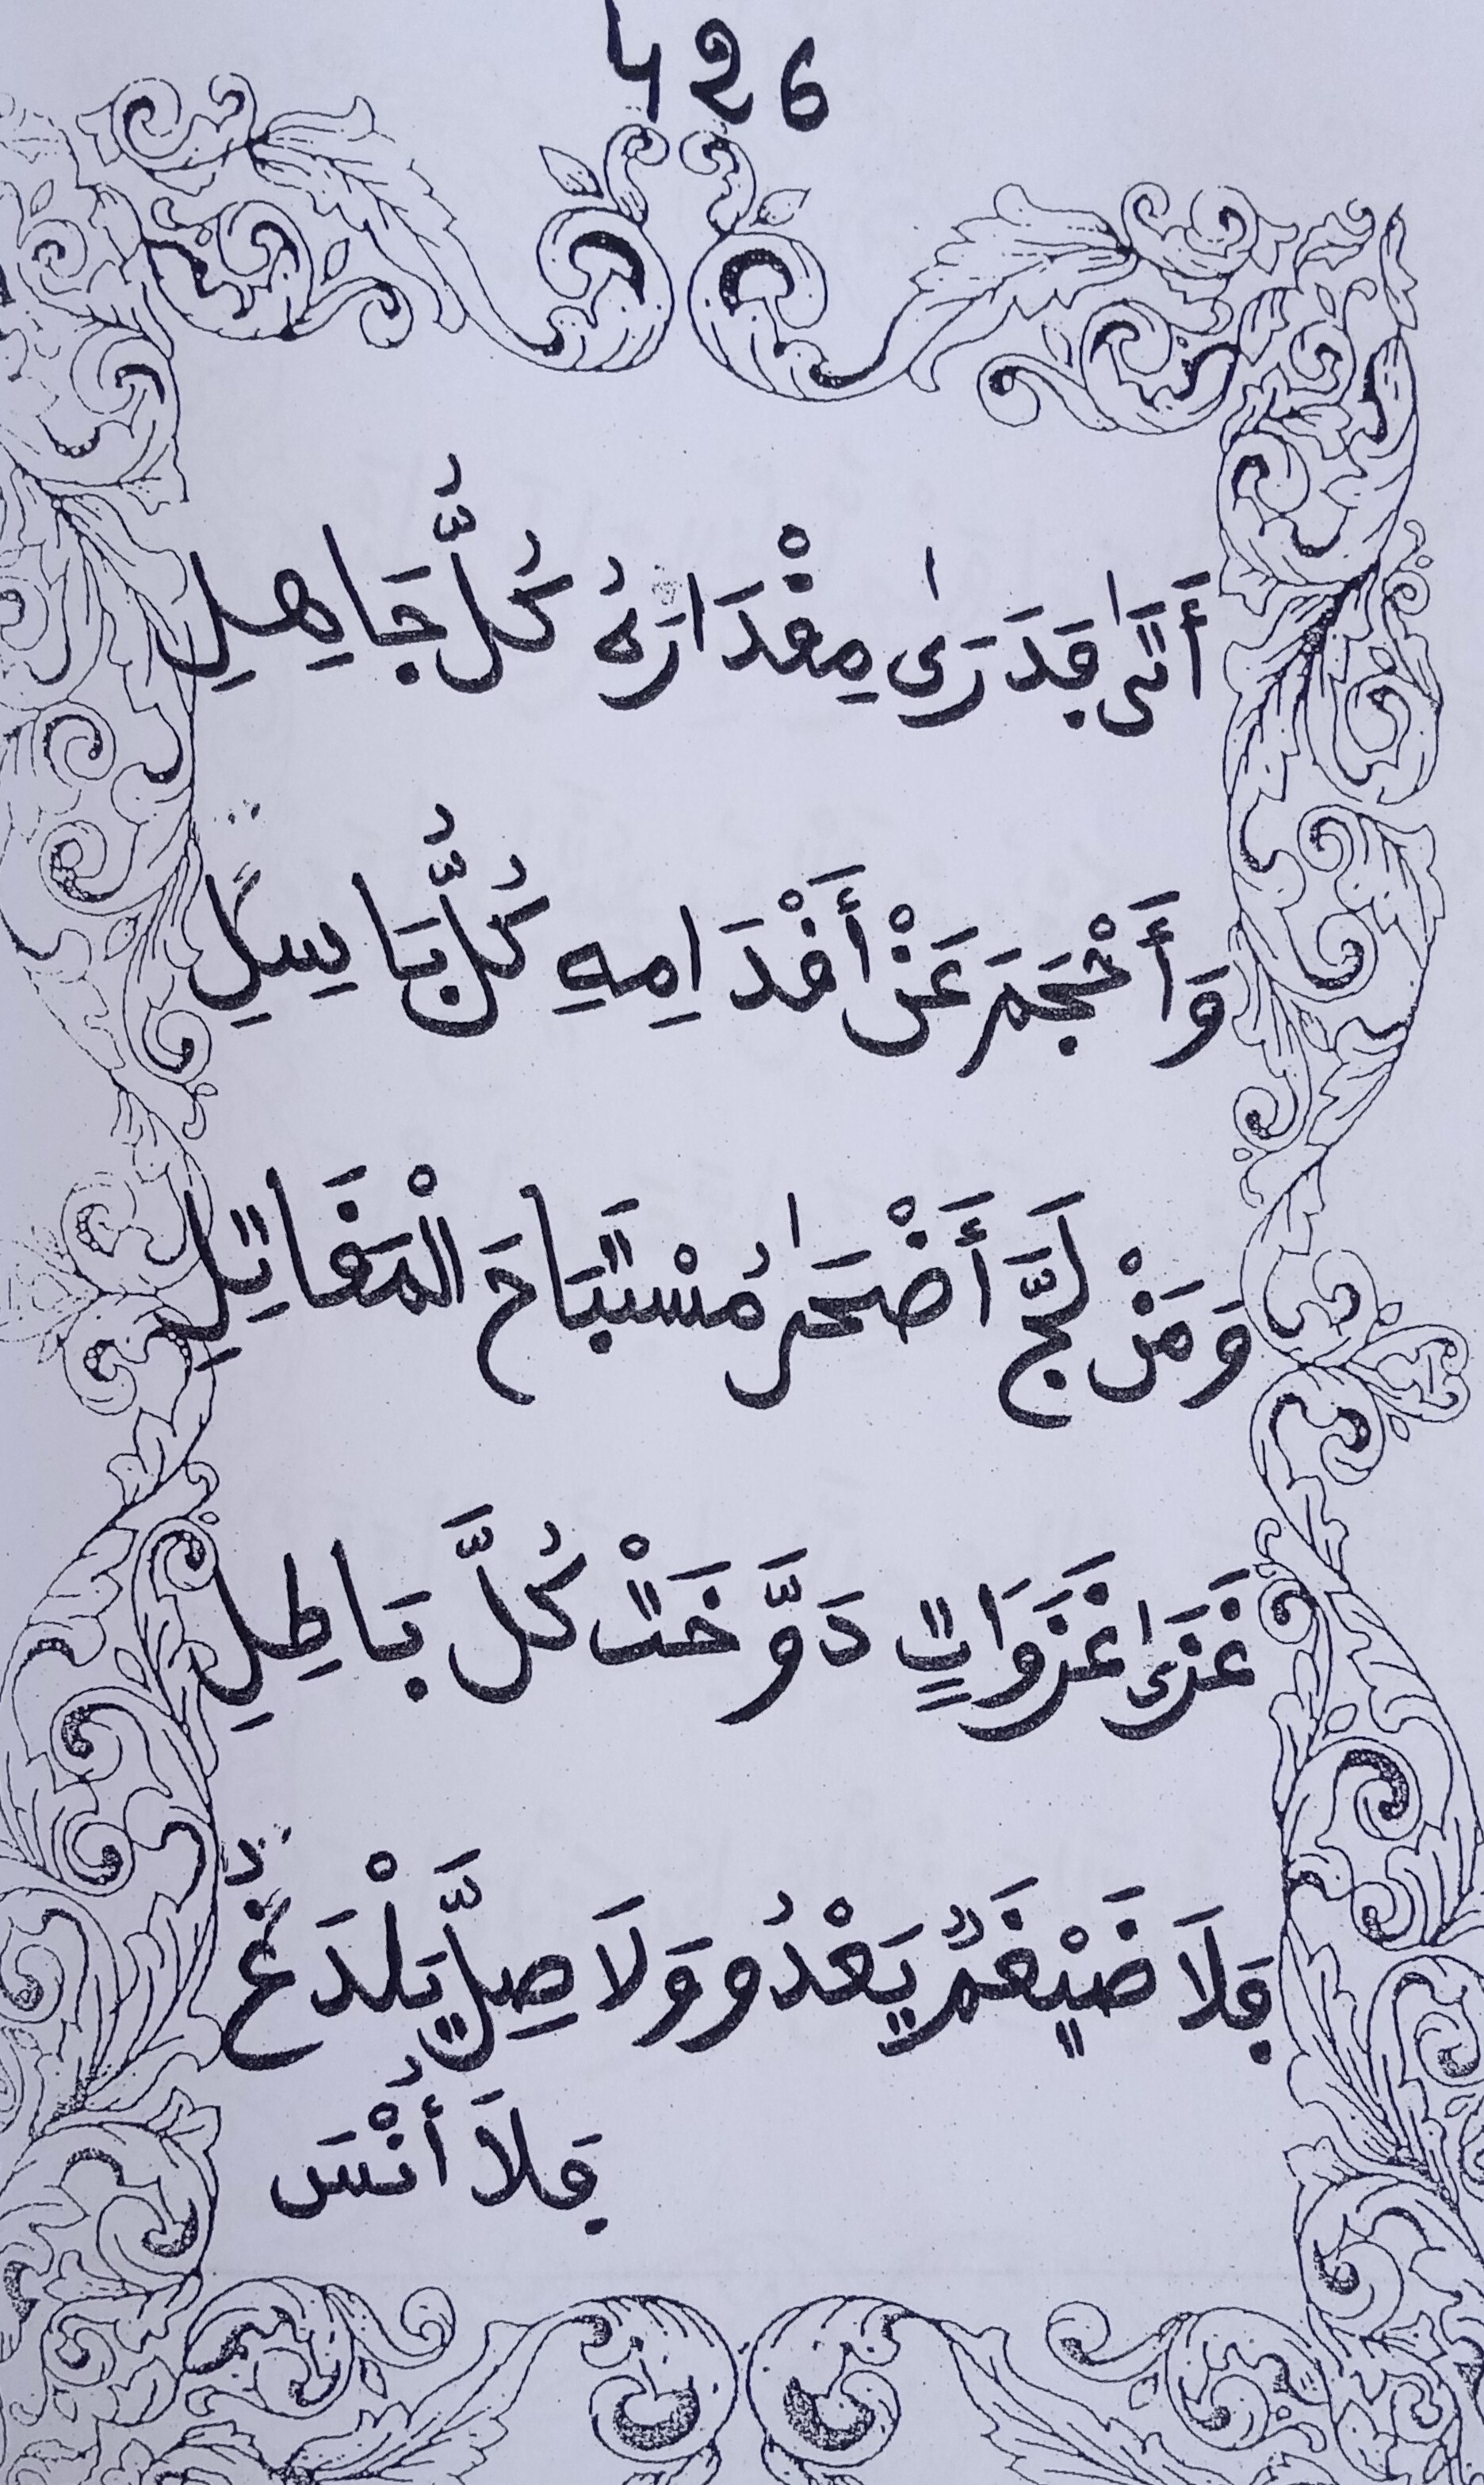 426
أَتَىٰ فَدَرَىٰ مِقْدَارَهُ كُلُّ جَاهِلِ
وَأَحْجَمَ عَنْ أَقْدَامِهِ كُلُّ بَاسِلٍ
وَمَنْ لَجَّ أَضْحَىٰ مُسْتَبَاحَ الْمَقَاتِلِ
غَزَىٰ غَزَوَاتٍ دَوَّخَتْ كُلَّ بَاطِلِ
فَلَا ضَيْغَمٌ يَعْدُو وَلَا صِلَّ يَلْدَغُ
فَلَا أُنْسَ